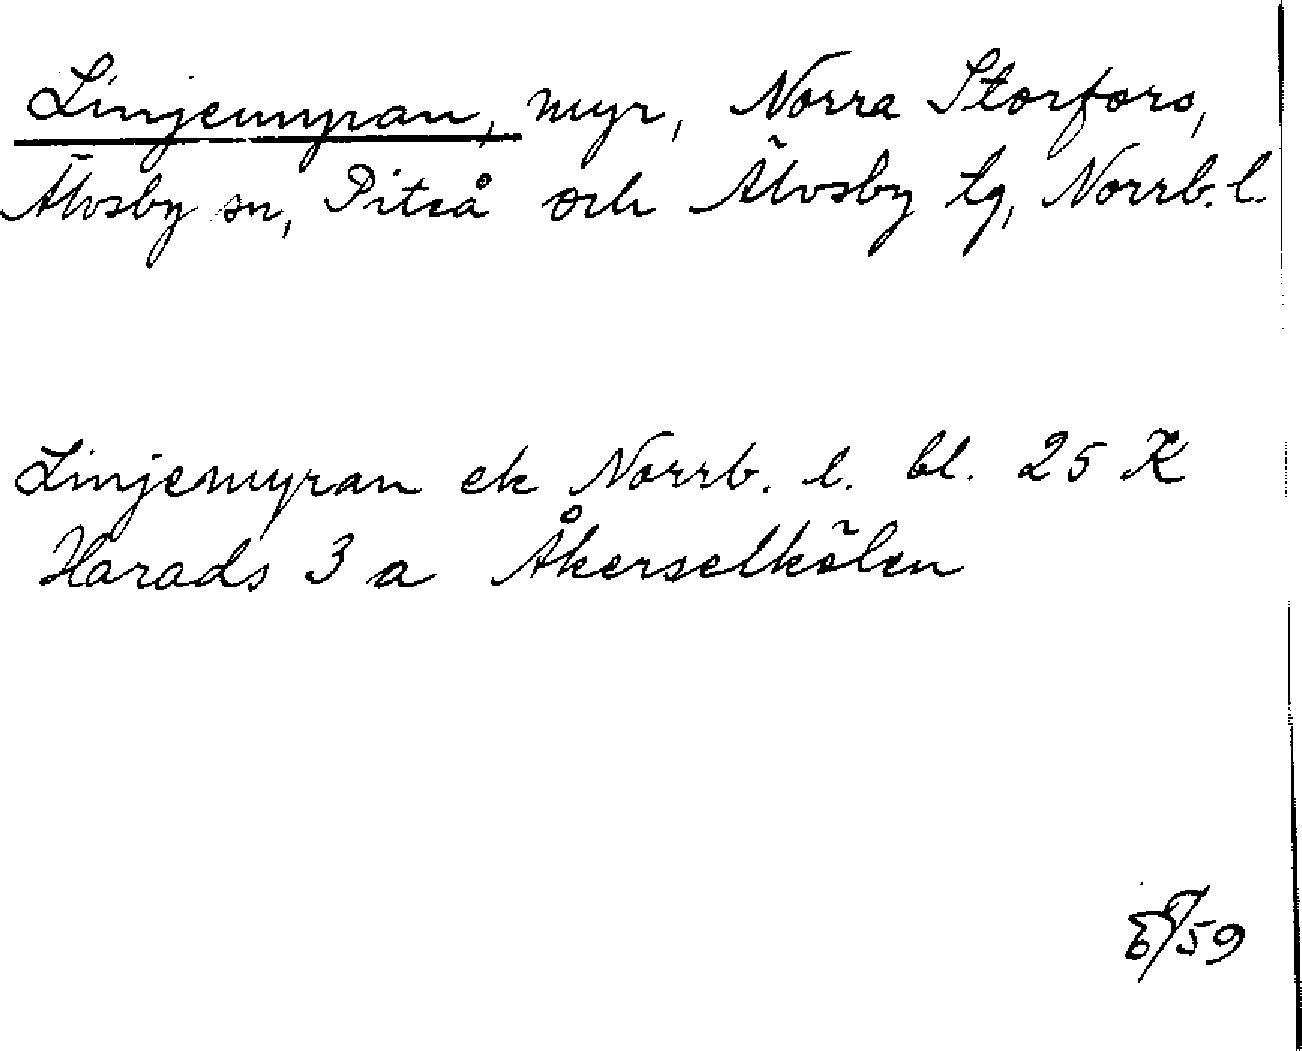 Linjemyran, myr, Norra Storfors,
Älvsby sn, Piteå och Älvsby tg, Norrb. l.
Linjemyran ek Norrb. l. bl. 25 K
Harads 3 a Åkerselkölen
59